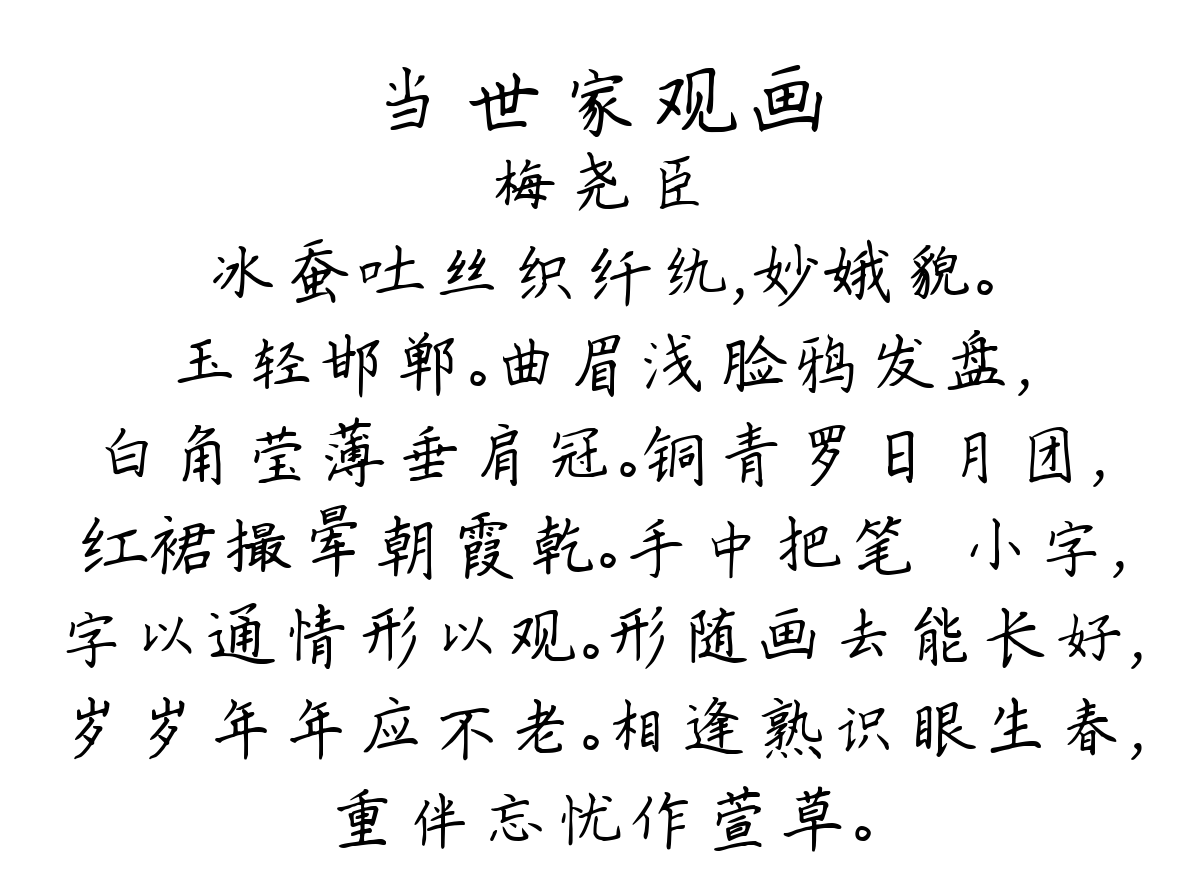 当世家观画
梅尧臣
冰蚕吐丝织纤纨,妙娥貌。
玉轻邯郸。曲眉浅脸鸦发盘,
白角莹薄垂肩冠。铜青罗日月团,
红裙撮晕朝霞乾。手中把笔 小字,
字以通情形以观。形随画去能长好,
岁岁年年应不老。相逢熟识眼生春,
重伴忘忧作萱草。